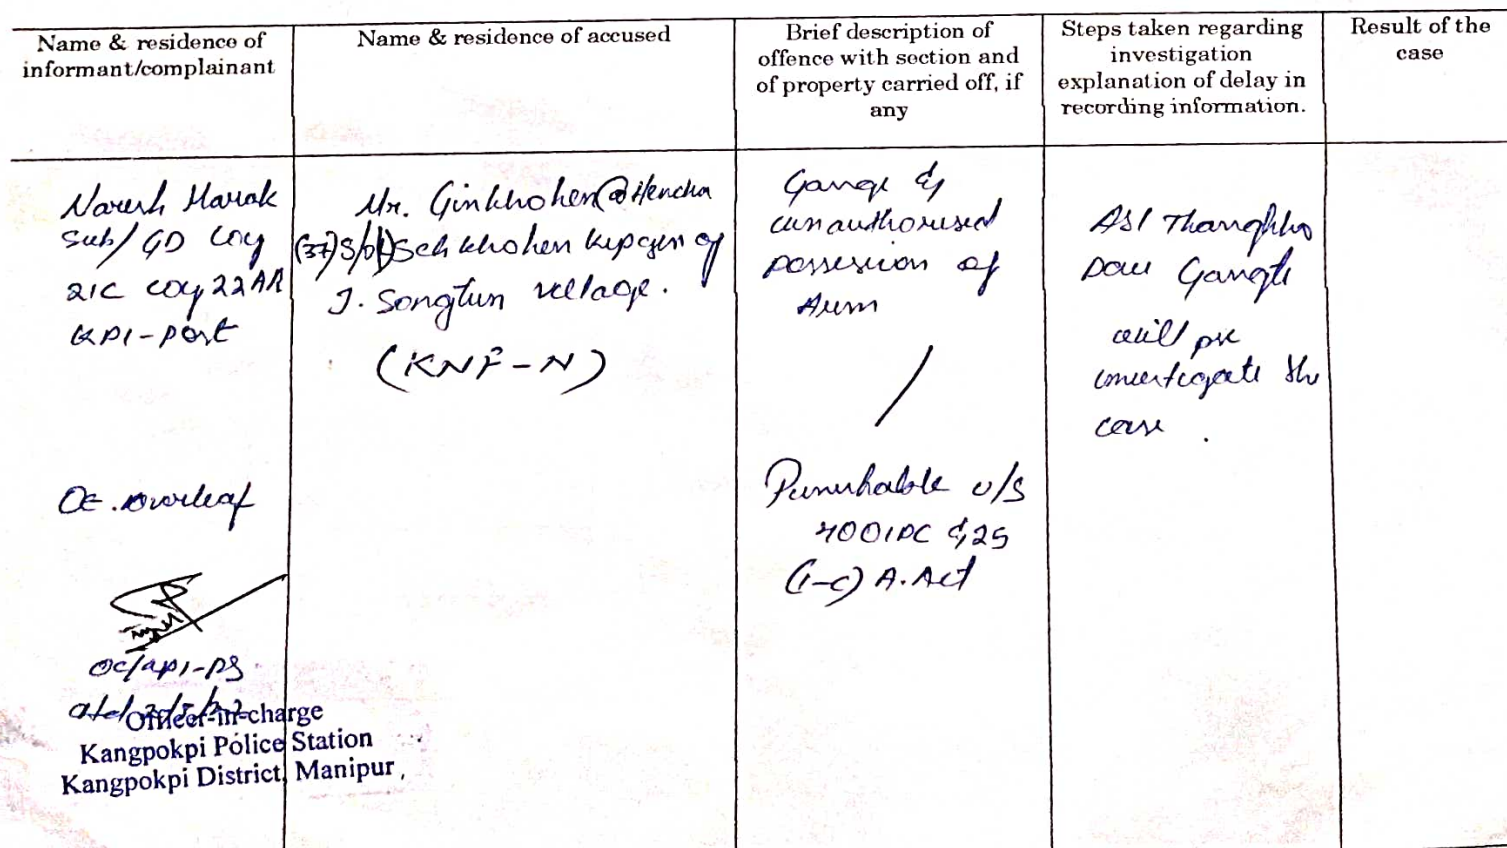 Name & residence of
informant/complainant
Name & residence of accused
Brief description of
offence with section and
of property carried off, if
any
Steps taken regarding
investigation
explanation of delay in
recording information.
Result of the
case
Naresh Marak
Sub/GD Coy
2IC Coy 22AR
KPI-Post
OE. overleaf
OC/KPI-PS
Officer-in-charge
Kangpokpi Police Station
Kangpokpi District, Manipur
Mr. Ginkhohen @ Hencha
(37) S/o (L) Seh khohen kipgen of
J. Songtun village.
(KNF-N)
Gang &
unauthorised
possession of
Arm
/
Punishable u/s
400 IPC & 25
(1-C) A. Act
ASI
Gangte
will
investigate the
case.